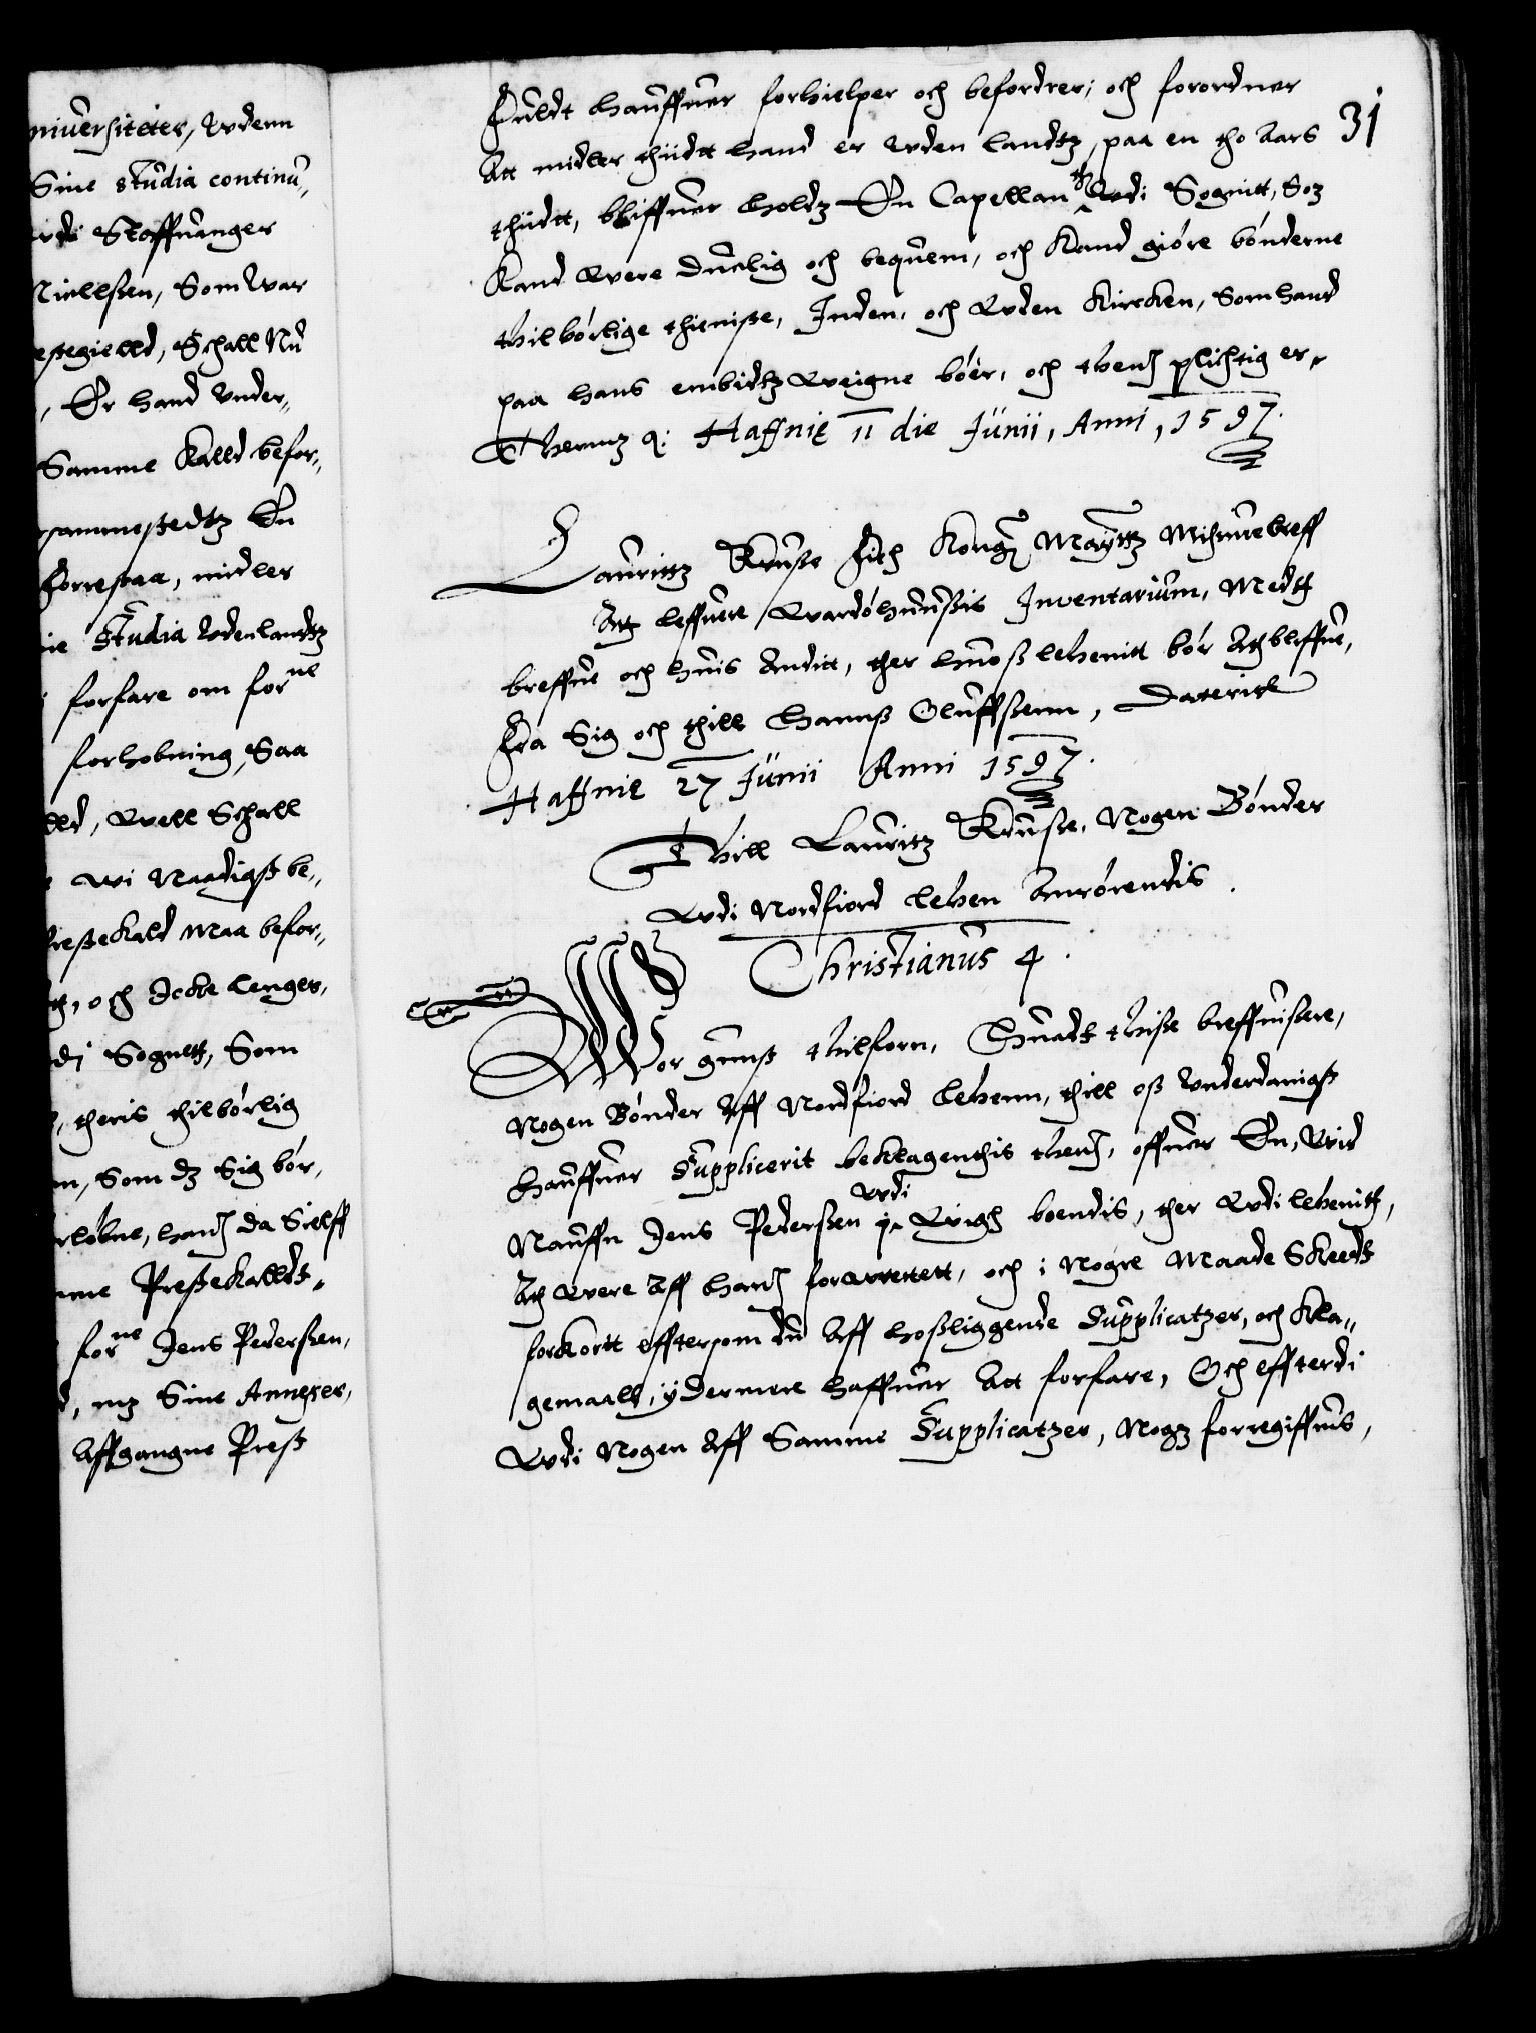 niversiteter, Vdenn
Sine studia continu„
vdi Staffuanger
Nielssen, Som war
estegielld, Schall Nu
, Er hand Vnder„
Samme Kalld befor„
sammestedtz En
Forrestaa, midler
ie Studia Vdenlandtz
forfare om forne
forhobning, Saa
lld, Well Schall
wi Naadigst be„
Prestekald Maa befor„
och Icke lenger,
di Sognett, Som
, theris thilbørlig
m, Som dz Sig bør,
løbne, hand da Sielff
me Prestekalldt„
forne Jens Pederssen,
d, mz Sine Annexer,
Affgangne Prest
31
Fuldt hauffuer forhielper och befordrer, och forordner
Att midler thiidtt hand er Vden landtz, paa en tho Aars
thiidtt, bliffuer holdz En Capellan th Vdi Sognitt, Soz
Kand Were duelig och bequem, och Kand giøre bønderne
thilbørlige thieniste, Inden, och Vden Kircken, Som hand
paa hans embidtz Weigne bøer, och thend plichtig er,
Thermz q: Haffnię 11 die Junii, Anni, 1597.
Lauritz Krusse Fich Kong: Maÿttz Missiuebreff
Att leffuere Wardøhuussis Inventarium, Medtz
breffue och huis Anditt, ther hooss lehenitt bør Att bliffue,
Fra Sig och thill Hanns Oluffssenn, Daterith
Haffnię 27 Junii Anni 1597.
Thill Lauritz Krusse, Nogen Bønder
Vdi Nordfiord Lehen Anrørendis.
Christianus 4.
Wor gunst thilforn, Huadt thisse breffuissere,
Nogen Bønder Aff Nordfiord Lehenn, thill oss Vnderdanigst
hauffuer Supplicerit beklagenthis thend, offuer En, Wid
Nauffn Jens Pederssen Vdi boendis, ther Vdi lehenitt,
Att Were Aff hand forWrettett, och i Nogre Maade Skeedt
forkortt effter som du Aff hossliggende Supplicatzer, och Kla„
gemaall, ÿdermere haffuer Att forfare, Och effterdi
Vdi Nogen Aff Samme Supplicatzer, Nogz forregiffuis,